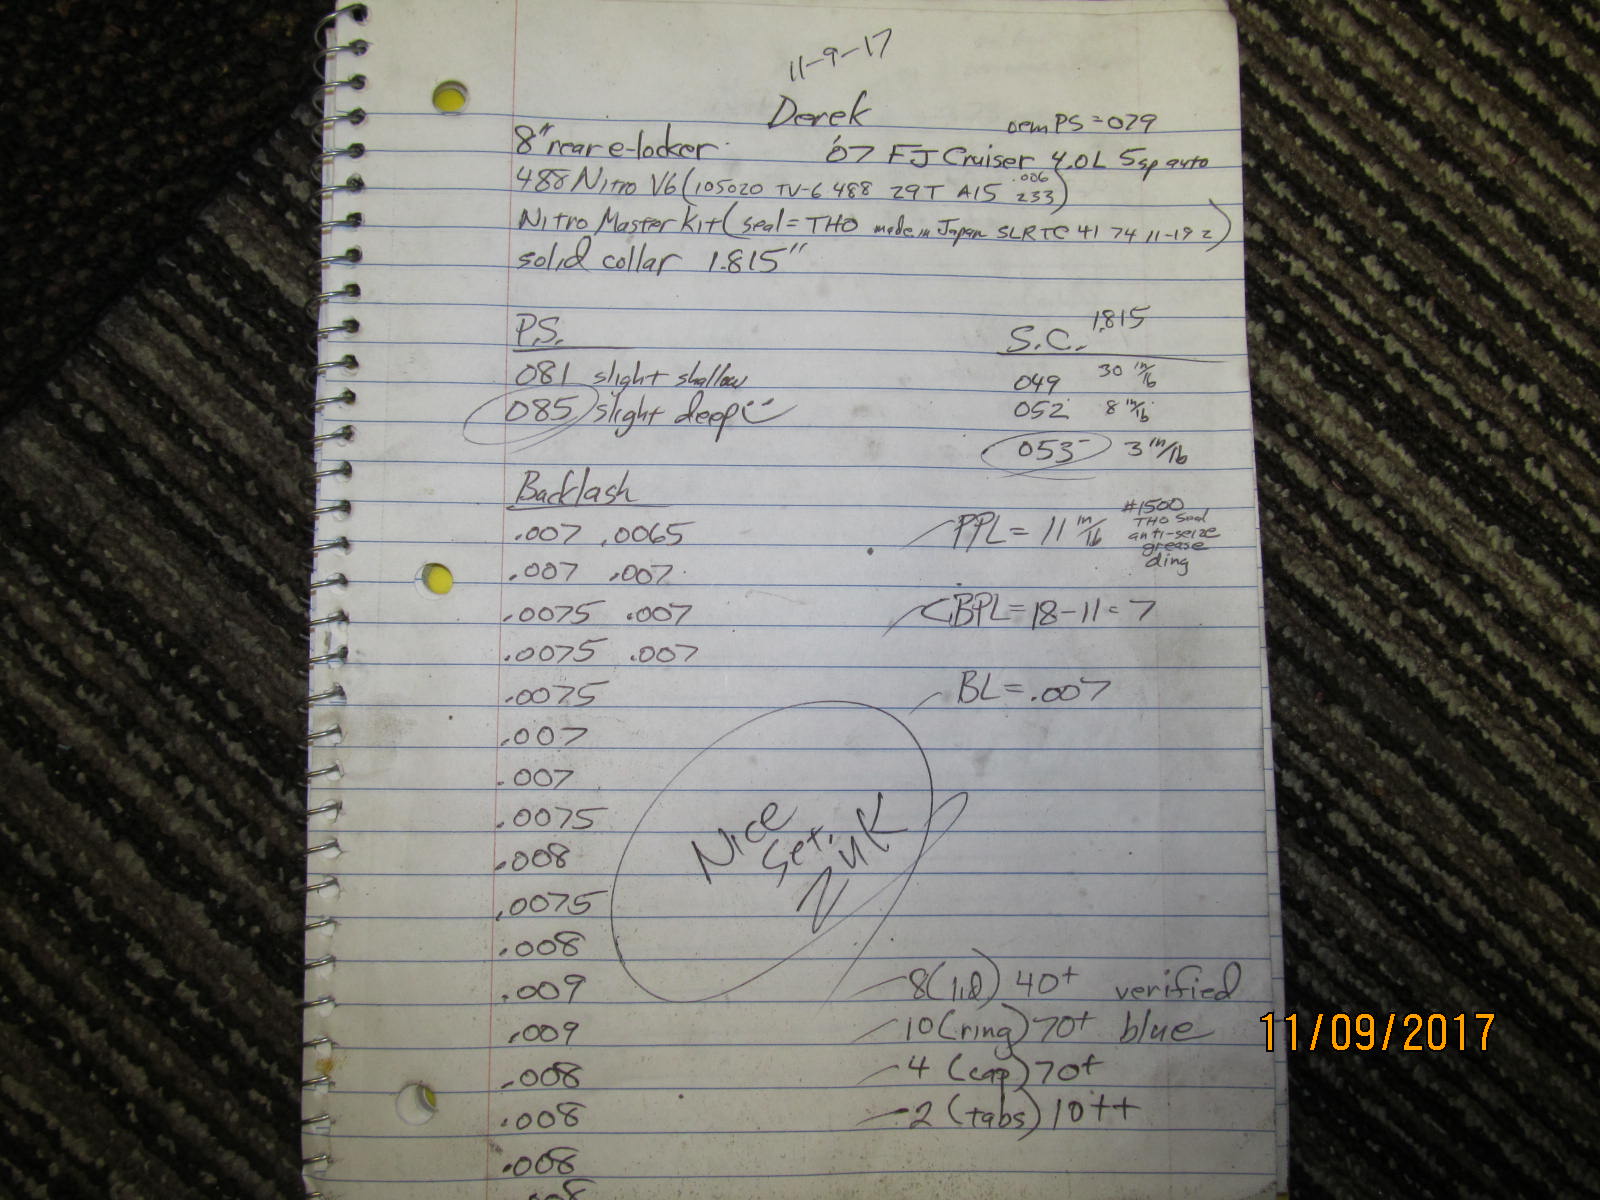 11-9-17
Derek
oem PS = 079
8" rear e-locker '07 FJ Cruiser 4.0L 5sp auto
488 Nitro V6 (105020 TV-6 488 29T A15 .006 233)
Nitro Master Kit (seal = THO made in Japan SLRTC 41 74 11-19 2)
solid collar 1.815"
P.S.
081 slight shallow
085 slight deep
S.C. 1.815
049 30 in/lb
052 8 in/lb
053- 3 in/lb
Backlash
.007 .0065
.007 .007
.0075 .007
.0075 .007
.0075
.007
.007
.0075
.008
.0075
.008
.009
.009
.008
.008
.008
.008
PPL = 11 in/lb
#1500
THO seal
anti-seize
grease
ding
CBPL = 18-11 = 7
BL = .007
Nice
Set,
Zuk
8 (lid) 40+ verified
10 (ring) 70+ blue
4 (cap) 70+
2 (tabs) 10++
11/09/2017